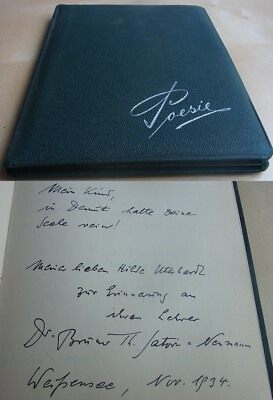 Poesie
Mein Kind,
in Demut halte Deine
Seele rein!
Meiner lieben Hilde
zur Erinnerung an
ihren Lehrer
Dr. Bruno Th. = Neumann
Weißensee, Nov. 1934.